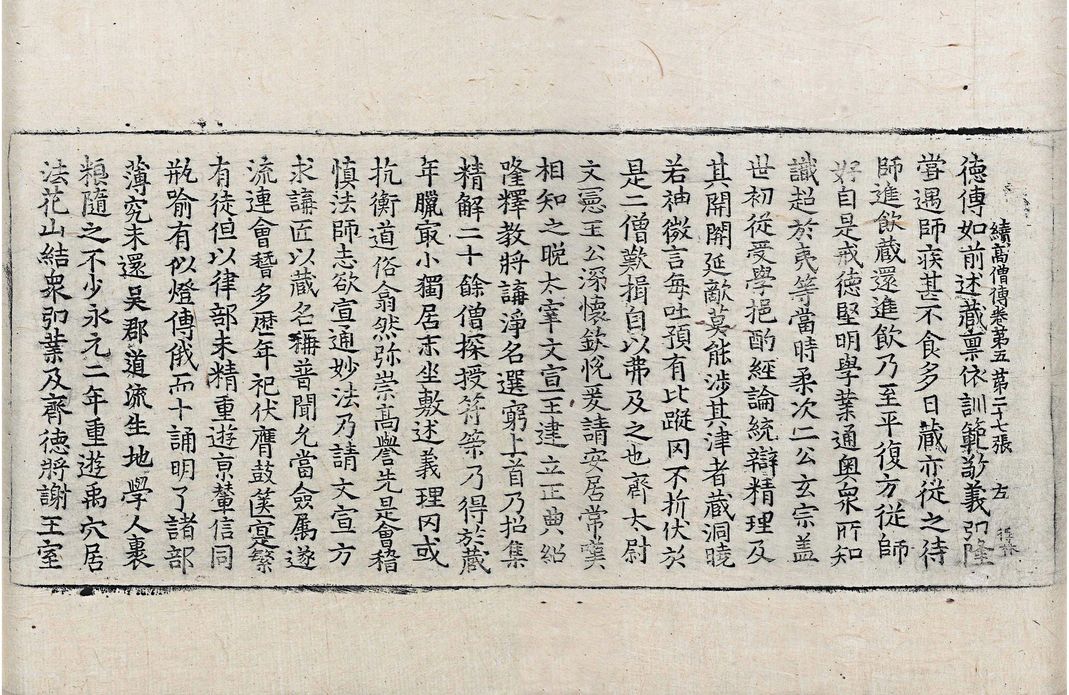 續高僧傳卷第五 第二十七張 左
德傳如前述藏禀依訓範敬義弥隆
當遇師疾甚不食多日藏亦從之待
師進飲藏還進飲乃至平復方從師
好自是戒德堅明學業通奥衆所知
識超於夷等當時柔次二公玄宗盖
世初從受學挹酌經論統辯精理及
其開關延敵莫能涉其津者藏洞曉
若神微言每吐預有比蹤罔不折伏於
是二僧歎揖自以弗及之也齊太尉
文憲王公深懷欽悅爰請安居常嘆
相知之晩太宰文宣王建立正典紹
隆釋教將講淨名選窮上首乃招集
精解二十餘僧探授符䇿乃得於藏
年臘㝡小獨居末坐敷述義理罔或
抗衡道俗翕然弥崇高譽先是會稽
慎法師志欲宣通妙法乃請文宣方
求講匠以藏名稱普聞允當僉屬遂
流連會稽多歷年祀伏膺鼓篋寔繁
有徒但以律部未精重遊京輦信同
瓶喻有似燈傳俄而十誦明了諸部
薄究未還吴郡道流生地學人裹
粮隨之不少永元二年重遊禹穴居
法花山結衆弘業及齊德將謝王室